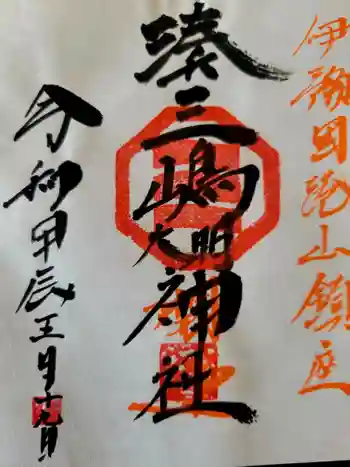 伊豫国港山鎮座
湊三嶋大明神社
令和甲辰五月十九日